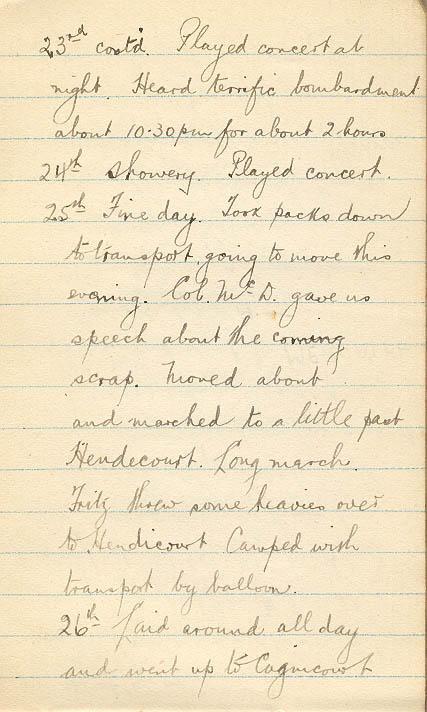 23rd contd. Played concert at
night. Heard terrific bombardment
about 10.30pm for about 2 hours
24th Showery. Played concert.
25th Fine day. Took packs down
to transport, going to move this
evening. Col. McD. gave us
speech about the coming
scrap. Moved about
and marched to a little past
Hendecourt. Long march.
Fritz threw some heavies over
to Hendicourt Camped with
transport by balloon.
26th Laid around all day
and went up to Cagnicourt